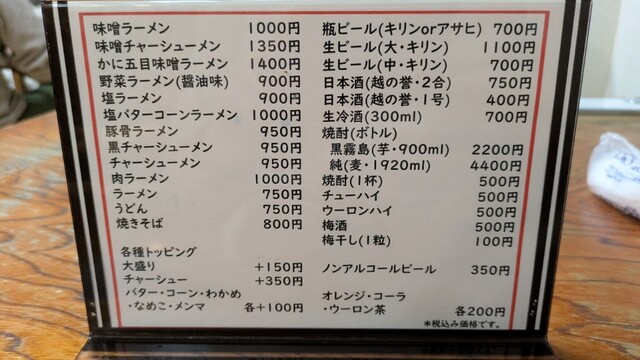 味噌ラーメン 1000円
味噌チャーシューメン 1350円
かに五目味噌ラーメン 1400円
野菜ラーメン(醤油味) 900円
塩ラーメン 900円
塩バターコーンラーメン 1000円
豚骨ラーメン 950円
黒チャーシューメン 950円
チャーシューメン 950円
肉ラーメン 1000円
ラーメン 750円
うどん 750円
焼きそば 800円
各種トッピング
大盛り +150円
チャーシュー +350円
バター・コーン・わかめ
・なめこ・メンマ 各+100円
瓶ビール(キリンorアサヒ) 700円
生ビール(大・キリン) 1100円
生ビール(中・キリン) 700円
日本酒(越の誉・2合) 750円
日本酒(越の誉・1号) 400円
生冷酒(300ml) 700円
焼酎(ボトル)
黒霧島(芋・900ml) 2200円
純(麦・1920ml) 4400円
焼酎(1杯) 500円
チューハイ 500円
ウーロンハイ 500円
梅酒 500円
梅干し(1粒) 100円
ノンアルコールビール 350円
オレンジ・コーラ
・ウーロン茶 各200円
*税込み価格です。